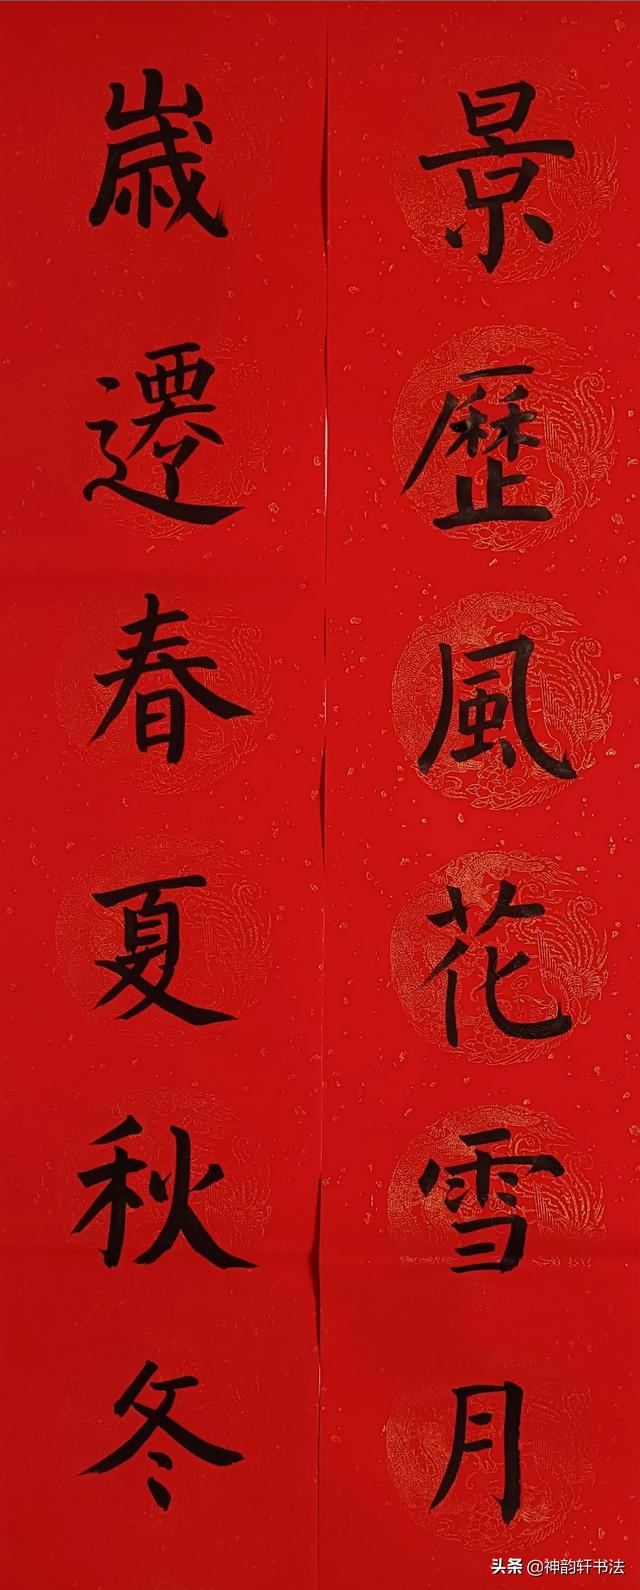 景歷風花雪月
歲遷春夏秋冬
头条 @神韵轩书法